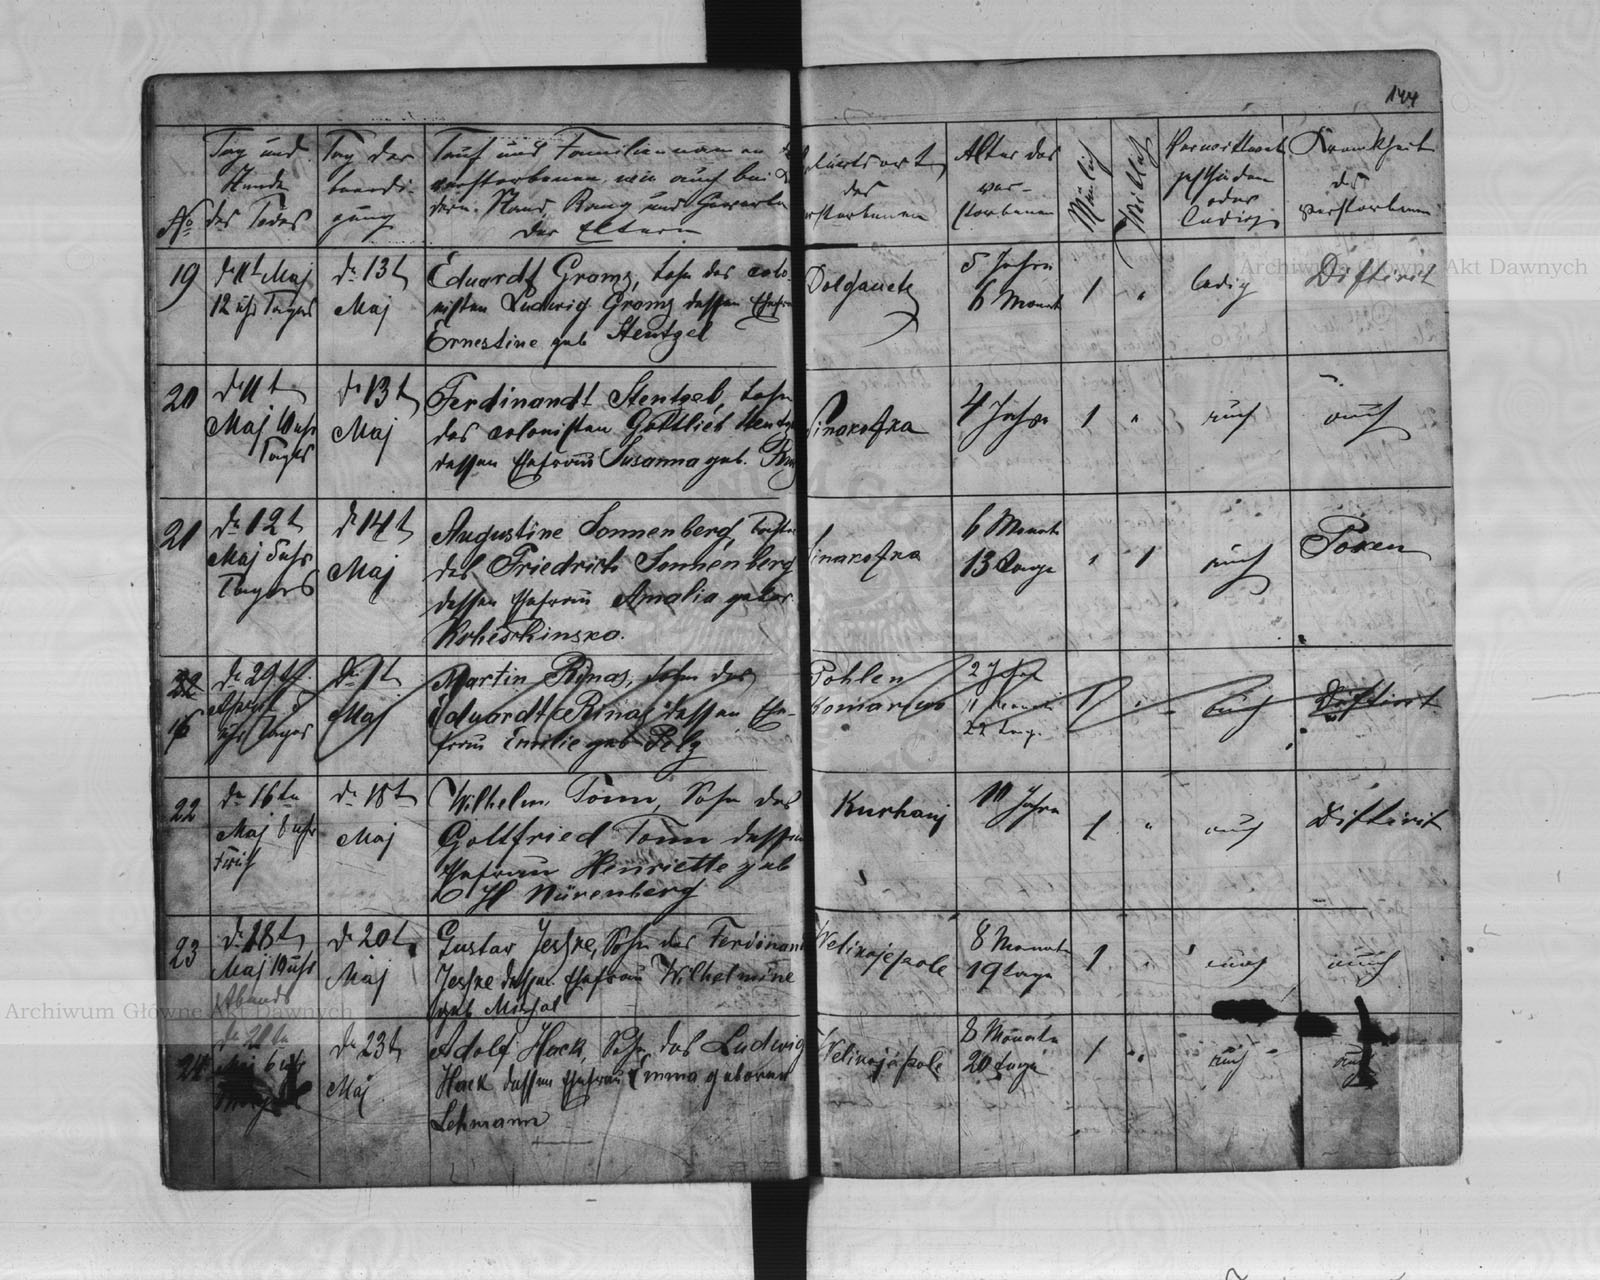 144
No
Tag und Stunde des Todes
Tag der beerdigung
Tauf und Familiennamen
verstorbenen, wie auch bei
dern Stand, Rang und Gewerbe
der Eltern
des
Alter des verstorbenen
Mänlich
Weiblich
oder ledig
Krankheit des verstorbenen
19
d. 11t Maj
12 uhr Tages
d. 13t
Maj
Eduardt Groms, Sohn des colo-
nisten Ludwig Groms dessen
Ernestine geb Stentzel
5 Jahre
6 Monat
1
"
ledig
Diftirit
20
d. 11t
Maj 10 uhr
Tages
d. 13t
Maj
Ferdinandt Stentzel, Sohn
des colonisten Gottlieb
dessen Ehefrau Susanna geb.
4 Jahre
1
"
auch
auch
21
d. 12t
Maj 5 uhr
Tages
d. 14t
Maj
Augustine Sonnenberg,
des Friedrich Sonnenberg
dessen Ehefrau Amalia gebor.
6 Monat
13 Tage
"
1
auch
Poken
22
d. 29t
uhr Tages
d. 1t
Maj
Martin Rinas, Sohn des
Eduardt Rinas dessen Ehe-
frau Emilie geb Pelz
2 Jahre
11 Monat
22 Tage
1
"
auch
Diftirit
22
d. 16tn
Maj 6 uhr
Früh
d. 18t
Maj
Wilhelm Tonn, Sohn des
Gottfried Tonn dessen
Ehefrau Henriette geb
Nürenberg
Kurhanj
11 Jahre
1
"
auch
Diftirit
23
d. 18t
Maj 10 uhr
Abends
d. 20t
Maj
Gustav Jeshke, Sohn des Ferdinand
Jeshke dessen Ehefrau Wilhelmine
geb
Welikojepole
8 Monat
19 Tage
1
"
auch
auch
24
6 uhr
d. 23t
Maj
Adolf Hock, Sohn des Ludwig
Hock dessen Ehefrau Emma geboren
Lehmann
Welikojepole
8 Monate
20 Tage
1
"
auch
auch
Archiwum Główne Akt Dawnych
Archiwum Główne Akt Dawnych